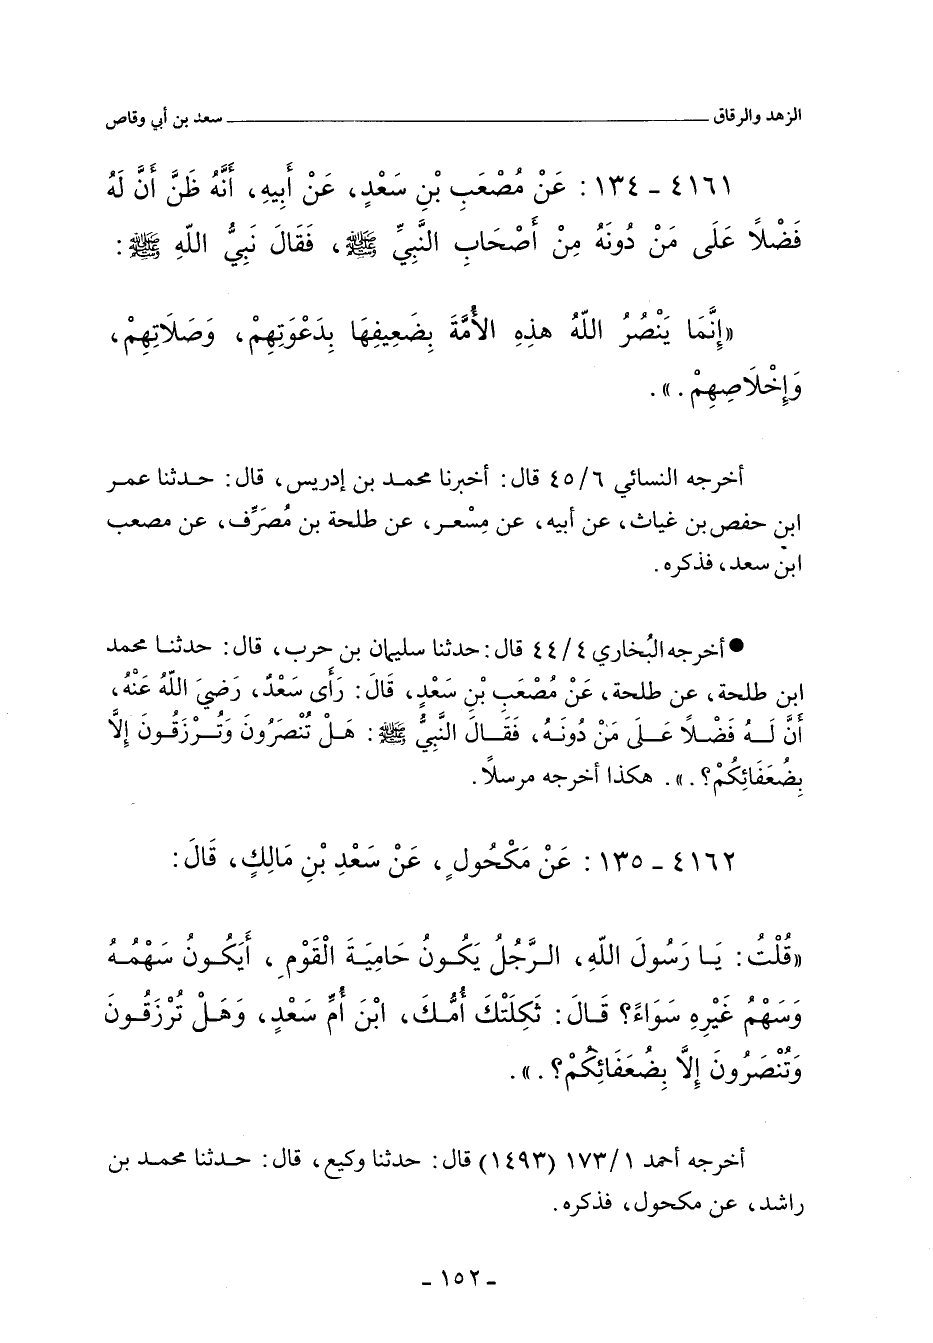 الزهد والرقاق ــــــــــــــــــــ سعد بن أبي وقاص
٤١٦١ - ١٣٤ : عَنْ مُصْعَبِ بْنِ سَعْدٍ، عَنْ أَبِيهِ، أَنَّهُ ظَنَّ أَنَّ لَهُ
فَضْلاً عَلَى مَنْ دُونَهُ مِنْ أَصْحَابِ النَّبِيِّ ﷺ، فَقَالَ نَبِيُّ اللّهِ ﷺ:
«إِنَّمَا يَنْصُرُ اللّهُ هذِهِ الأُمَّةَ بِضَعِيفِهَا بِدَعْوَتِهِمْ، وَصَلَاتِهِمْ،
وَإِخْلَاصِهِمْ.».
أخرجه النسائي ٤٥/٦ قال: أخبرنا محمد بن إدريس، قال: حدثنا عمر
ابن حفص بن غياث، عن أبيه، عن مِسْعر، عن طلحة بن مُصَرِّف، عن مصعب
ابن سعد، فذكره.
● أخرجه البُخاري ٤/ ٤٤ قال: حدثنا سليمان بن حرب، قال: حدثنا محمد
ابن طلحة، عن طلحة، عَنْ مُصْعَبِ بْنِ سَعْدٍ، قَالَ: رَأَى سَعْدٌ، رَضِيَ اللّهُ عَنْهُ،
أَنَّ لَهُ فَضْلاً عَلَى مَنْ دُونَهُ، فَقَالَ النَّبِيُّ ﷺ: هَلْ تُنْصَرُونَ وَتُرْزَقُونَ إِلَّا
بِضُعَفَائِكُمْ؟.». هكذا أخرجه مرسلاً.
٤١٦٢ - ١٣٥ : عَنْ مَكْحُولٍ، عَنْ سَعْدِ بْنِ مَالِكٍ، قَالَ:
«قُلْتُ: يَا رَسُولَ اللّهِ، الرَّجُلُ يَكُونُ حَامِيَةَ الْقَوْمِ، أَيَكُونُ سَهْمُهُ
وَسَهْمُ غَيْرِهِ سَوَاءً؟ قَالَ: ثَكِلَتْكَ أُمُّكَ، ابْنَ أُمِّ سَعْدٍ، وَهَلْ تُرْزَقُونَ
وَتُنْصَرُونَ إِلَّا بِضُعَفَائِكُمْ؟.».
أخرجه أحمد ١٧٣/١ (١٤٩٣) قال: حدثنا وكيع، قال: حدثنا محمد بن
راشد، عن مكحول، فذكره.
- ١٥٢ -